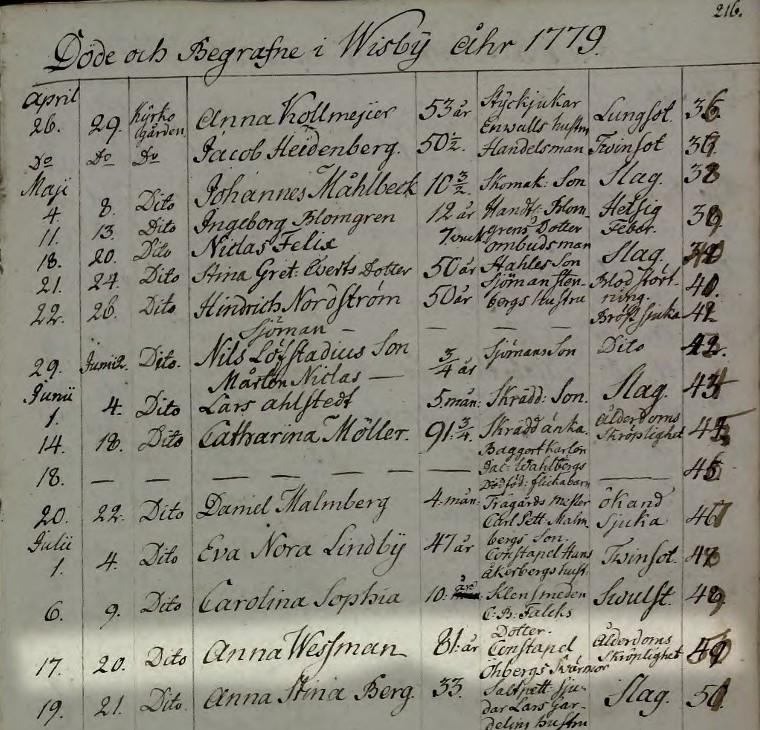 216.
Döde och Begrafne i Wisbÿ åhr 1779.
April
26. 29. Kÿrko gården Anna Kollmejier 53 år Stÿckjukar Enwalls hustru Lungsot. 36
Do Do Do Jacob Heidenberg. 50½. Handelsman Twinsot 37
Maji
4. 8. Dito Johannes Måhlbeck 10 3/2. Skomak: Son Slag. 38
11. 13. Dito Ingeborg Blomgren 12 år Handl: Blomgrens Dotter Hetsig Feber. 39
18. 20. Dito Niclas Felix 7 ombudsman Hahles Son Slag. 40
21. 24. Dito Stina Gret: Everts Dotter 50 år Sjöman Stenbergs hustru Blodstörtning. 40.
22. 26. Dito Hindrich Nordström 50 år Bröstsjuka 42
Sjöman — — — —
29. Junii 2. Dito. Nils Löfstadius Son ¾ år Sjömans Son Dito 42.
Mårten Niclas —
Junii
1. 4. Dito Lars ahlstedt 5 mån: Skrädd: Son. Slag. 43
14. 18. Dito Catharina Möller. 91.¾. Skrädd änka. Ålderdoms Skröplighet 44
18. — — — — — — Baggort Karlon Jac: Wahlbergs Dödföd: flickabarn — 45
20. 22. Dito Daniel Malmberg 4 mån: Trägårds Mäster Carl Pett: Malmbergs Son. okand Sjuka 46
Julii
1. 4. Dito Eva Nora Lindbÿ 47 år Constapel Hans åkerbergs hust. Twinsot. 48
6. 9. Dito Carolina Sophia 10. år Klensmeden C: B: Falcks Dotter. Swulst. 49
17. 20. Dito Anna Wessman 81: år Constapel Öhbergs Swärmor Ålderdoms Skröplighet 50
19. 21. Dito. Anna Stina Berg 33. Saltpett: sjudar Lars Gardelins hustru Slag. 51